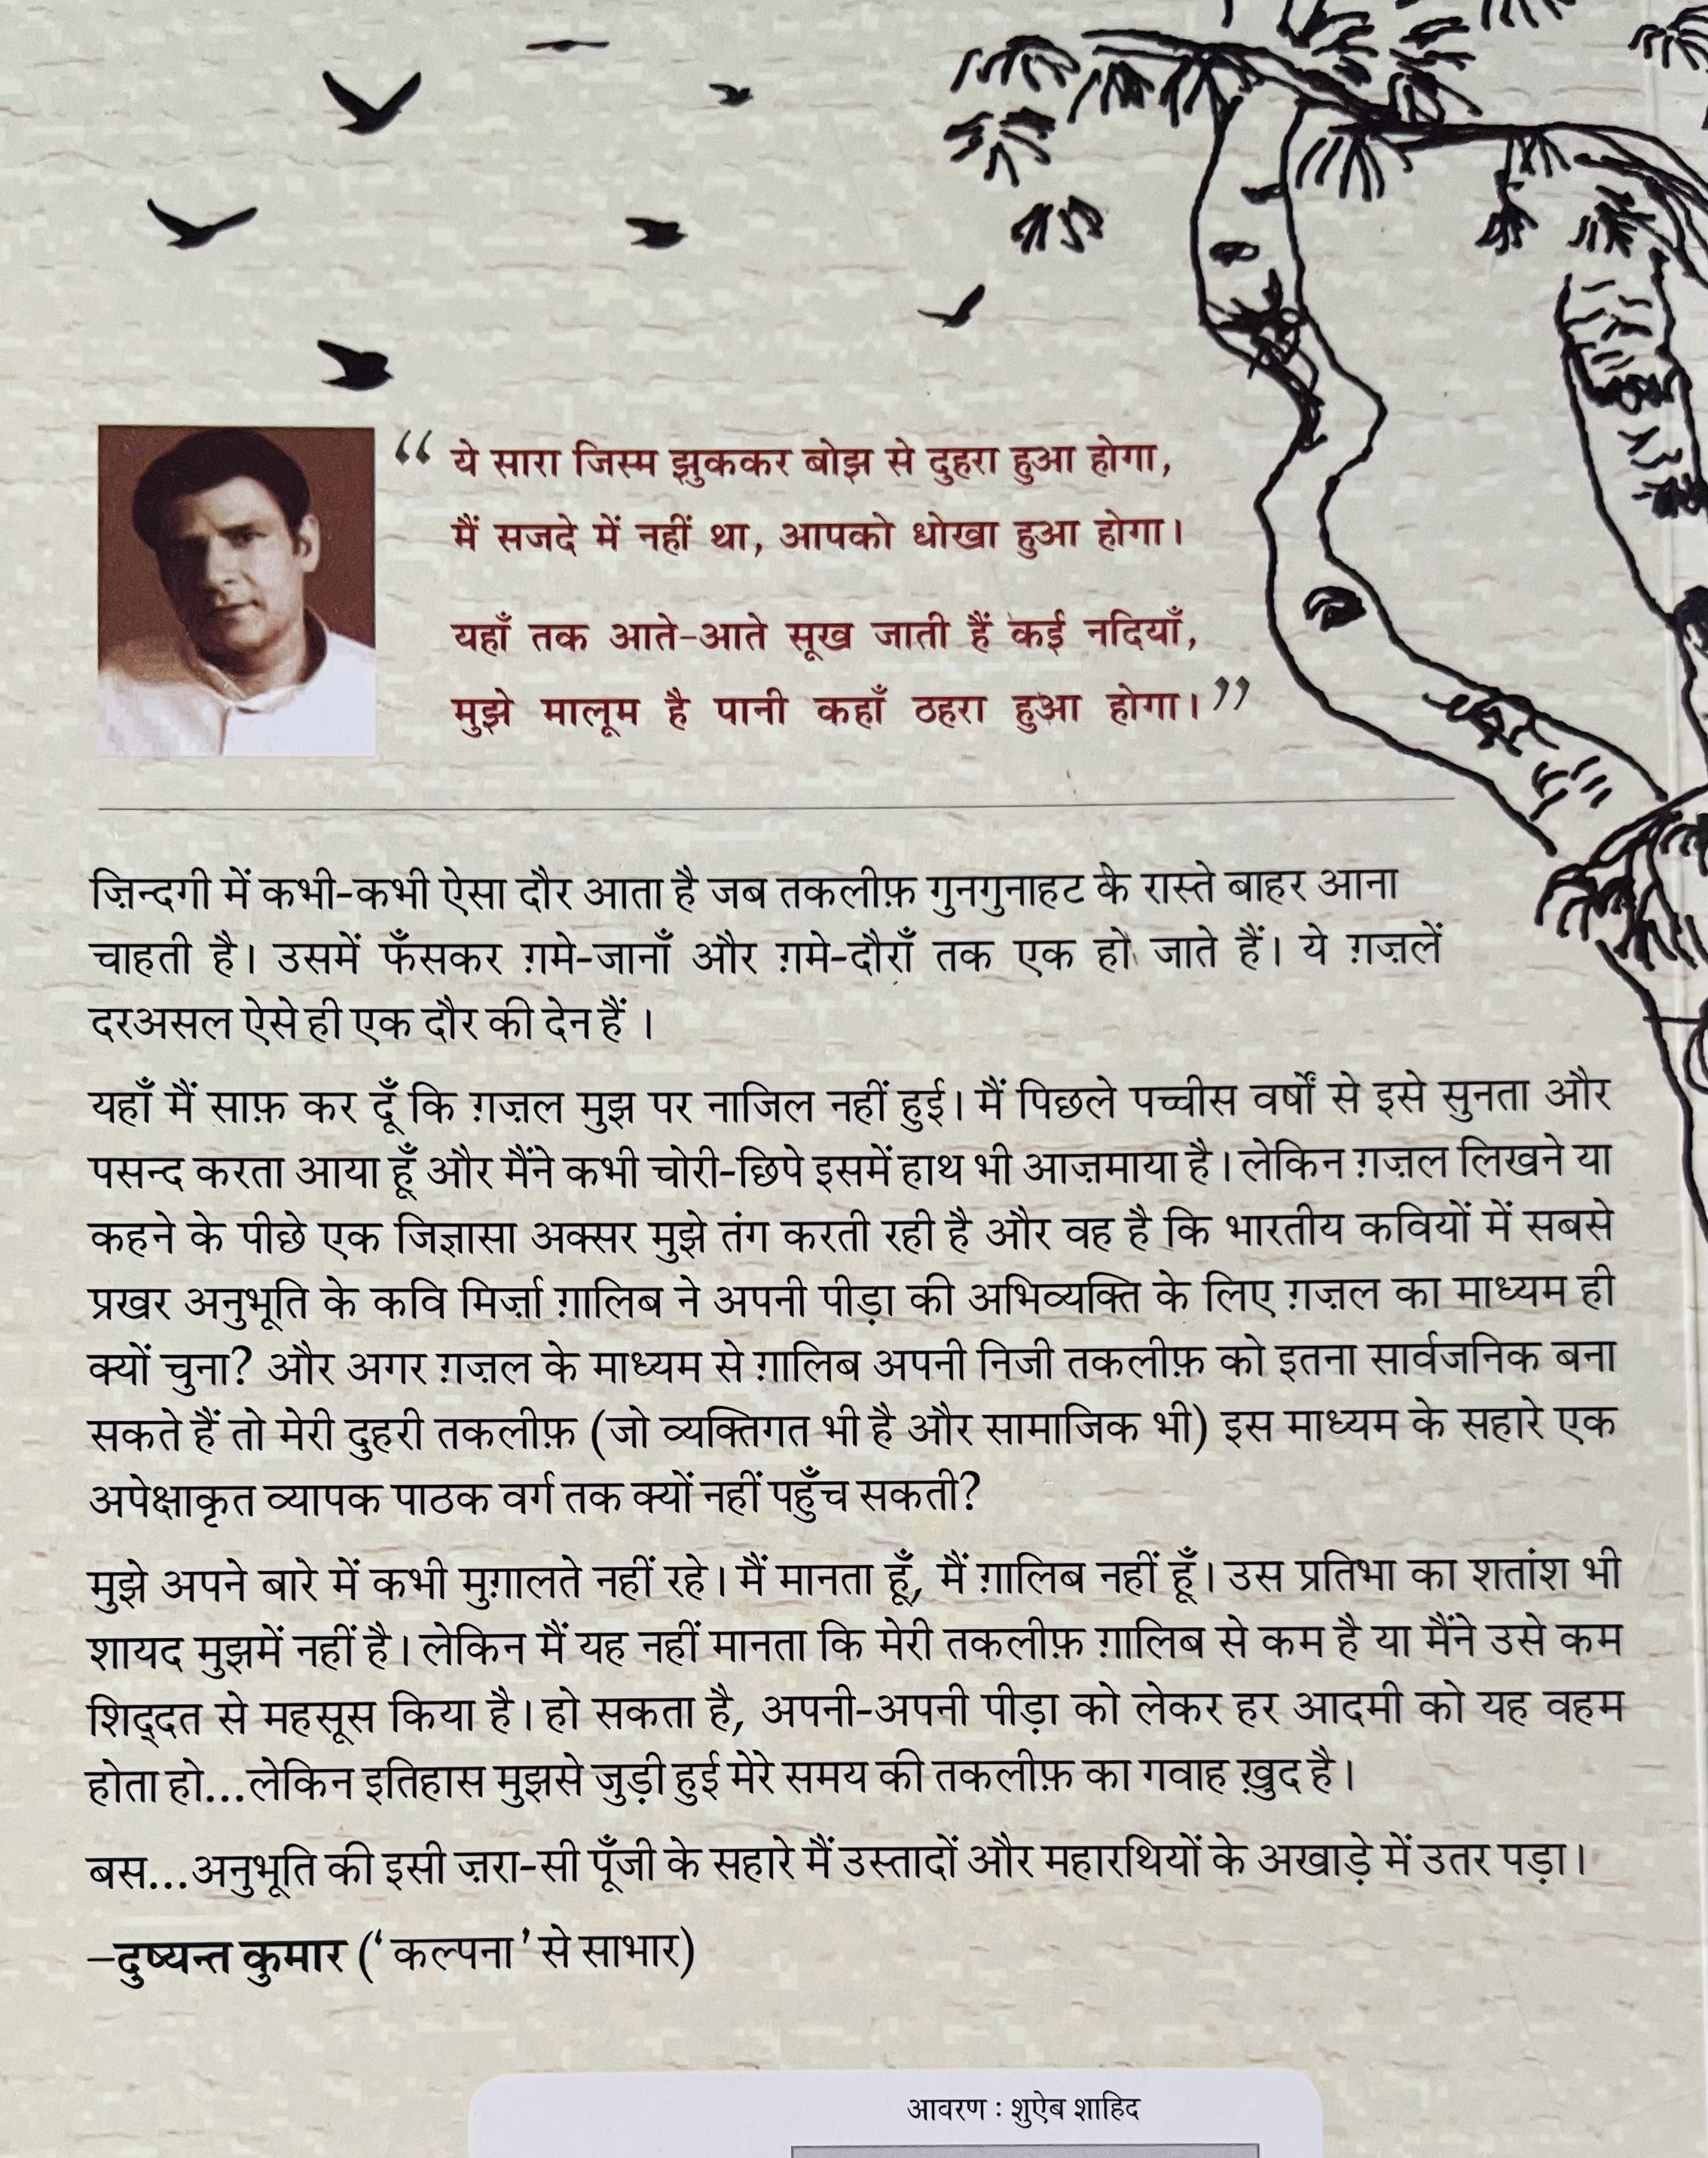 “ ये सारा जिस्म झुककर बोझ से दुहरा हुआ होगा,
मैं सजदे में नहीं था, आपको धोखा हुआ होगा।
यहाँ तक आते-आते सूख जाती हैं कई नदियाँ,
मुझे मालूम है पानी कहाँ ठहरा हुआ होगा। ”
ज़िन्दगी में कभी-कभी ऐसा दौर आता है जब तकलीफ़ गुनगुनाहट के रास्ते बाहर आना
चाहती है। उसमें फँसकर ग़मे-जानाँ और ग़मे-दौराँ तक एक हो जाते हैं। ये ग़ज़लें
दरअसल ऐसे ही एक दौर की देन हैं ।
यहाँ मैं साफ़ कर दूँ कि ग़ज़ल मुझ पर नाजिल नहीं हुई। मैं पिछले पच्चीस वर्षों से इसे सुनता और
पसन्द करता आया हूँ और मैंने कभी चोरी-छिपे इसमें हाथ भी आज़माया है। लेकिन ग़ज़ल लिखने या
कहने के पीछे एक जिज्ञासा अक्सर मुझे तंग करती रही है और वह है कि भारतीय कवियों में सबसे
प्रखर अनुभूति के कवि मिर्ज़ा ग़ालिब ने अपनी पीड़ा की अभिव्यक्ति के लिए ग़ज़ल का माध्यम ही
क्यों चुना? और अगर ग़ज़ल के माध्यम से ग़ालिब अपनी निजी तकलीफ़ को इतना सार्वजनिक बना
सकते हैं तो मेरी दुहरी तकलीफ़ (जो व्यक्तिगत भी है और सामाजिक भी) इस माध्यम के सहारे एक
अपेक्षाकृत व्यापक पाठक वर्ग तक क्यों नहीं पहुँच सकती?
मुझे अपने बारे में कभी मुग़ालते नहीं रहे। मैं मानता हूँ, मैं ग़ालिब नहीं हूँ। उस प्रतिभा का शतांश भी
शायद मुझमें नहीं है। लेकिन मैं यह नहीं मानता कि मेरी तकलीफ़ ग़ालिब से कम है या मैंने उसे कम
शिद्दत से महसूस किया है। हो सकता है, अपनी-अपनी पीड़ा को लेकर हर आदमी को यह वहम
होता हो...लेकिन इतिहास मुझसे जुड़ी हुई मेरे समय की तकलीफ़ का गवाह ख़ुद है।
बस...अनुभूति की इसी ज़रा-सी पूँजी के सहारे मैं उस्तादों और महारथियों के अखाड़े में उतर पड़ा।
–दुष्यन्त कुमार (‘कल्पना’ से साभार)
आवरण : शुऐब शाहिद